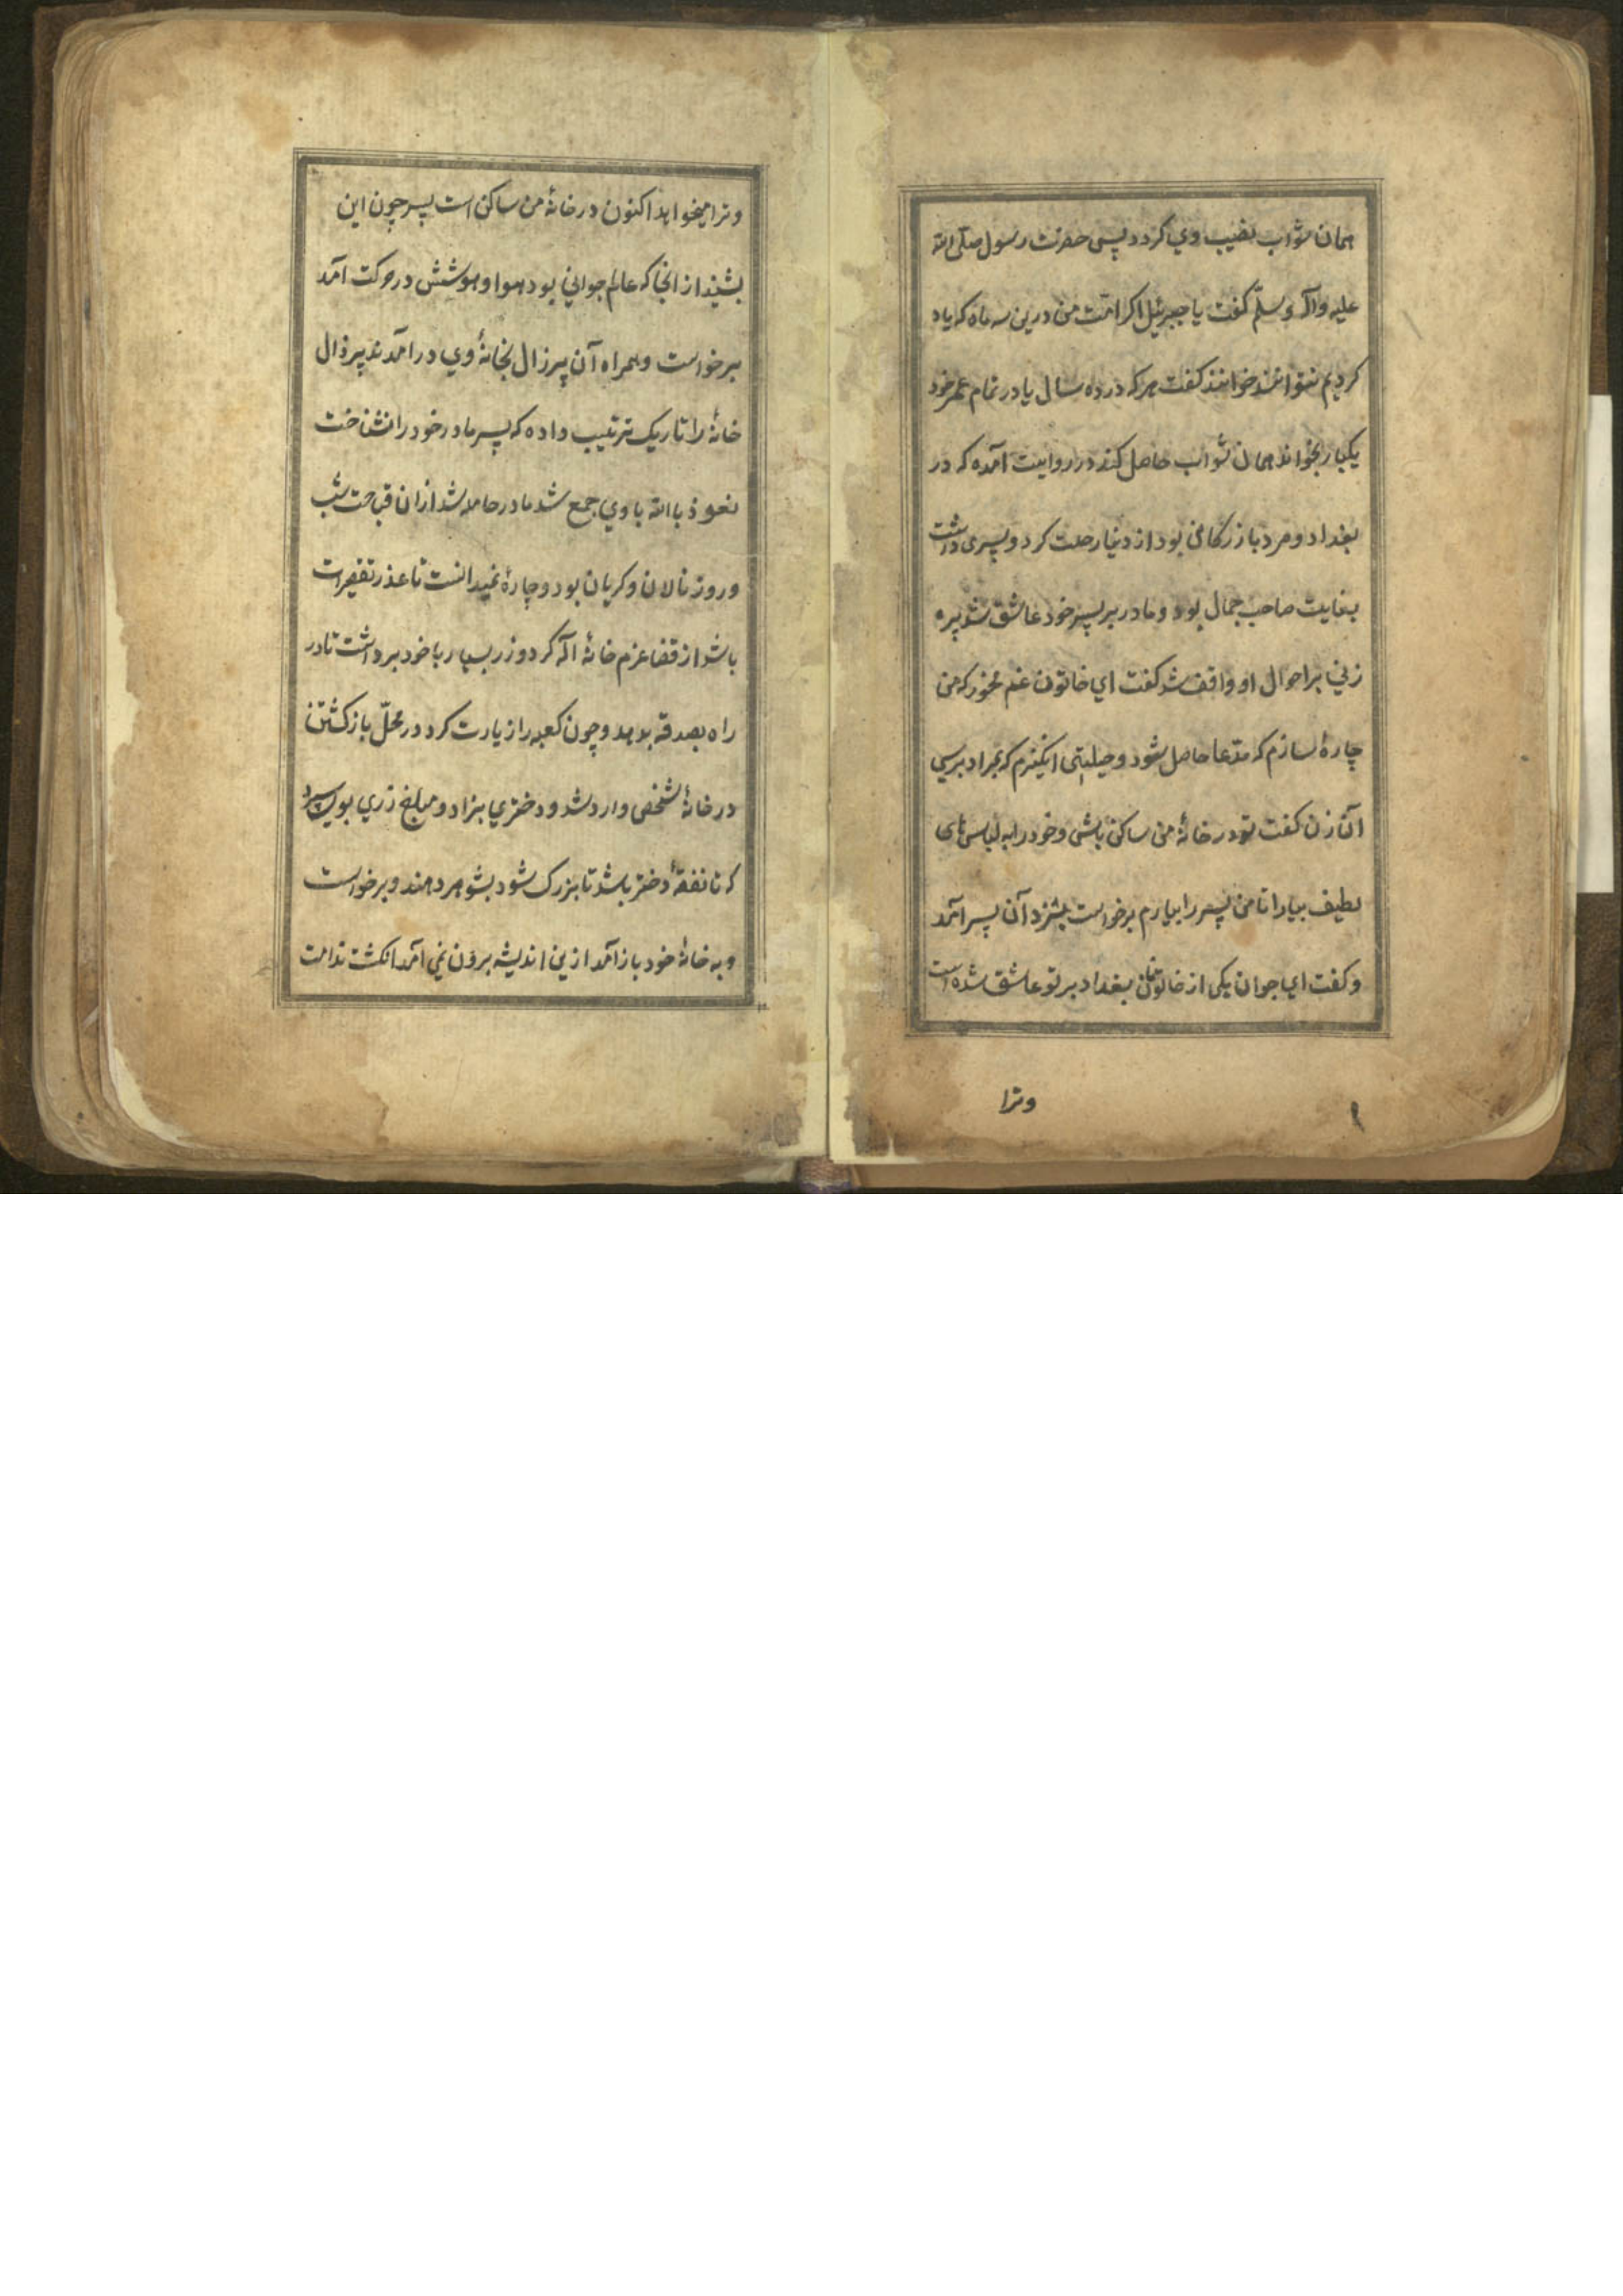 همان ثواب نصیب وي کردد پس حضرت رسول صلّی الله
علیه وآله وسلّم کفت یا جبرئیل اکر امّت من درین سه ماه که یاد
کردیم نتوانند خوانند کفت هر که در ده سال یا در تمام عمر خود
یکبار بخواند همان ثواب حاصل کند در روایت آمده که در
بغداد و مرد بازرکانی بود از دنیا رحلت کرد و پسری داشت
بغایت صاحب جمال بود و مادر بر پسر خود عاشق شد پیره
زني بر احوال او واقف شد کفت اي خاتون غم مخور که من
چارهٔ سازم که مدّعا حاصل شود و حیلتی انکیزم که بمراد برسي
آن زن کفت تو در خانهٔ من ساکن باشی و خود را به لباس های
لطیف بیارا تا من پسر را بیارم برخواست بنزد آن پسر آمد
و کفت اي جوان یکی از خاتونان بغداد بر تو عاشق شده است
وترا
وترا میخواهد اکنون در خانهٔ من ساکن است پسر چون این
بشنید از انجا که عالم جواني بود هوا و هوشش در حرکت آمد
برخواست و همراه آن پیرزال بخانهٔ وي در امدند پیرزال
خانهٔ را تاریک ترتیب داده که پسر مادر خود را نشناخت
نعوذ باالله با وي جمع شد مادر حامله شد از ان قباحت شب
وروز نالان و کریان بود و چارهٔ نمیدانست تا عذر تقصیرات
باشد از قضا عزم خانهٔ اله کرد و زر بسیار با خود برداشت تا در
راه بصدقه بدهد و چون کعبه را زیارت کرد در محلّ بازکشتن
در خانهٔ شخصی وارد شد و دختري بزاد و مبلغ زري بوي سپرد
که تا نفقهٔ دختر باشد تا بزرک شود بشوهر دهند و برخواست
و به خانهٔ خود باز آمد ازین اندیشه برون نمي آمد انکشت ندامت